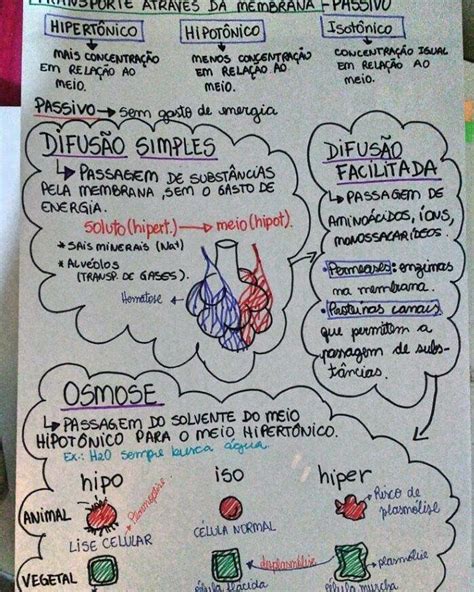 TRANSPORTE ATRAVÉS DA MEMBRANA - PASSIVO
HIPERTÔNICO
MAIS CONCENTRAÇÃO
EM RELAÇÃO AO
MEIO.
HIPOTÔNICO
MENOS CONCENTRAÇÃO
EM RELAÇÃO AO
MEIO.
ISOTÔNICO
CONCENTRAÇÃO IGUAL
EM RELAÇÃO AO
MEIO.
PASSIVO → sem gasto de energia
DIFUSÃO SIMPLES
↳ PASSAGEM DE SUBSTÂNCIAS
PELA MEMBRANA, SEM O GASTO DE
ENERGIA.
soluto (hipert.) → meio (hipot).
* SAIS MINERAIS (Na+)
* ALVÉOLOS
(TRANSP. DE GASES).
Hematose
DIFUSÃO
FACILITADA
↳ PASSAGEM DE
AMINOÁCIDOS, ÍONS,
MONOSSACARÍDEOS.
• Permeases: enzimas
na membrana.
• Proteínas canais
que permitem a
passagem de subs-
tâncias.
OSMOSE
↳ PASSAGEM DO SOLVENTE DO MEIO
HIPOTÔNICO PARA O MEIO HIPERTÔNICO.
Ex.: H2O sempre busca água.
hipo
iso
hiper
ANIMAL
LISE CELULAR
CÉLULA NORMAL
Risco de
plasmólise
VEGETAL
deplasmólise
plasmólise
célula flácida
célula murcha